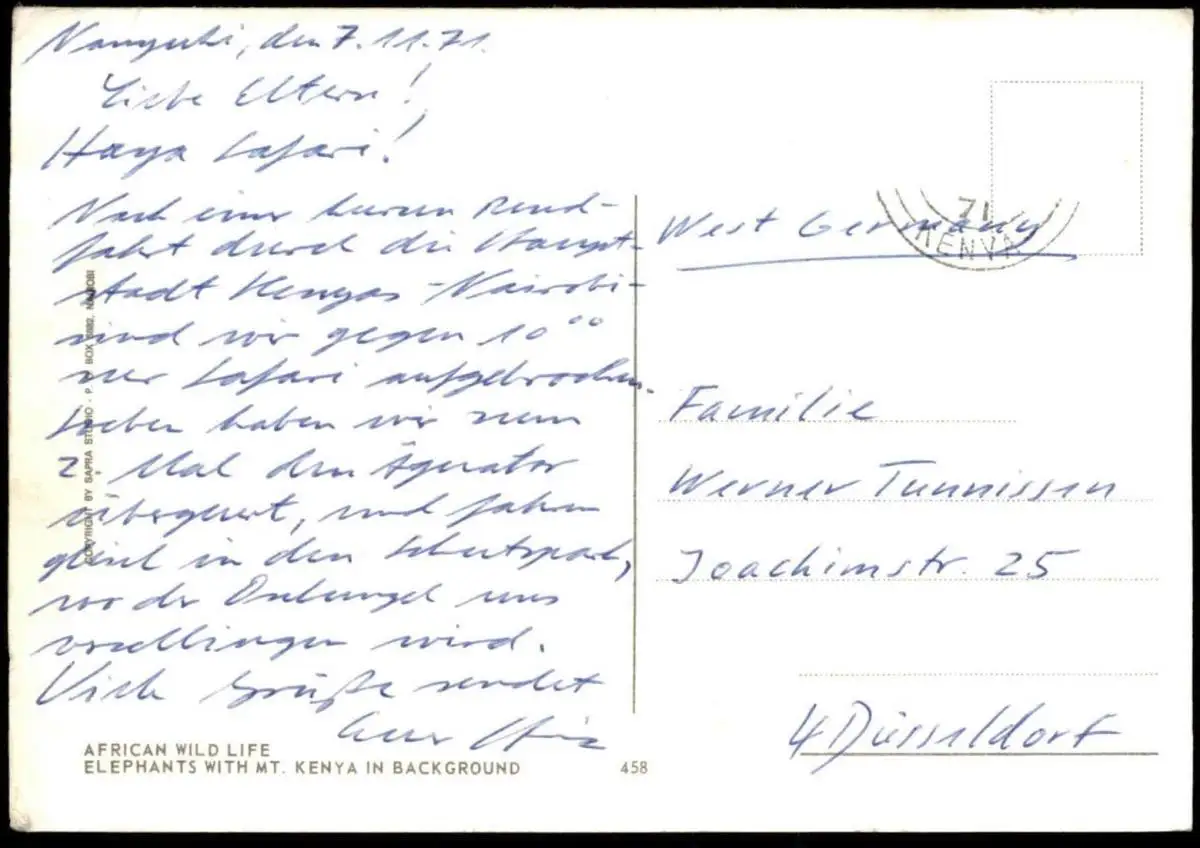 Nanyuki, den 7.11.71.
Liebe Eltern!
Haya Safari!
Nach einer kurzen Rund-
fahrt durch die Haupt-
stadt Kenyas -Nairobi-
sind wir gegen 10⁰⁰
zur Safari aufgebrochen.
Soeben haben wir zum
2. Mal den Äquator
überquert, und fahren
gleich in den Schutzpark,
wo der Dschungel uns
verschlingen wird.
Viele Grüße sendet
Euer
AFRICAN WILD LIFE
ELEPHANTS WITH MT. KENYA IN BACKGROUND
458
COPYRIGHT BY SAPRA STUDIO · P. O. BOX NAIROBI
71
KENYA
West Germany
Familie
Werner Tunnissen
Joachimstr. 25
4 Düsseldorf